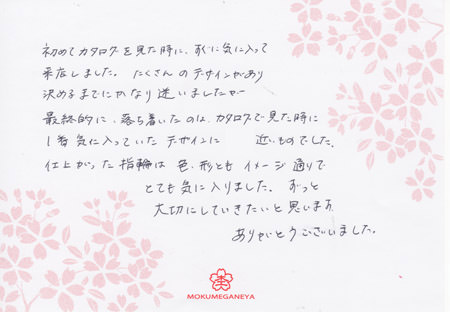 初めてカタログを見た時に、すぐに気に入って
来店しました。たくさんのデザインがあり
決めるまでにかなり迷いましたが
最終的に、落ち着いたのは、カタログで見た時に
1番気に入っていたデザインに 近いものでした。
仕上がった指輪は色・形ともイメージ通りで
とても気に入りました。ずっと
大切にしていきたいと思います
ありがとうございました。
MOKUMEGANEYA